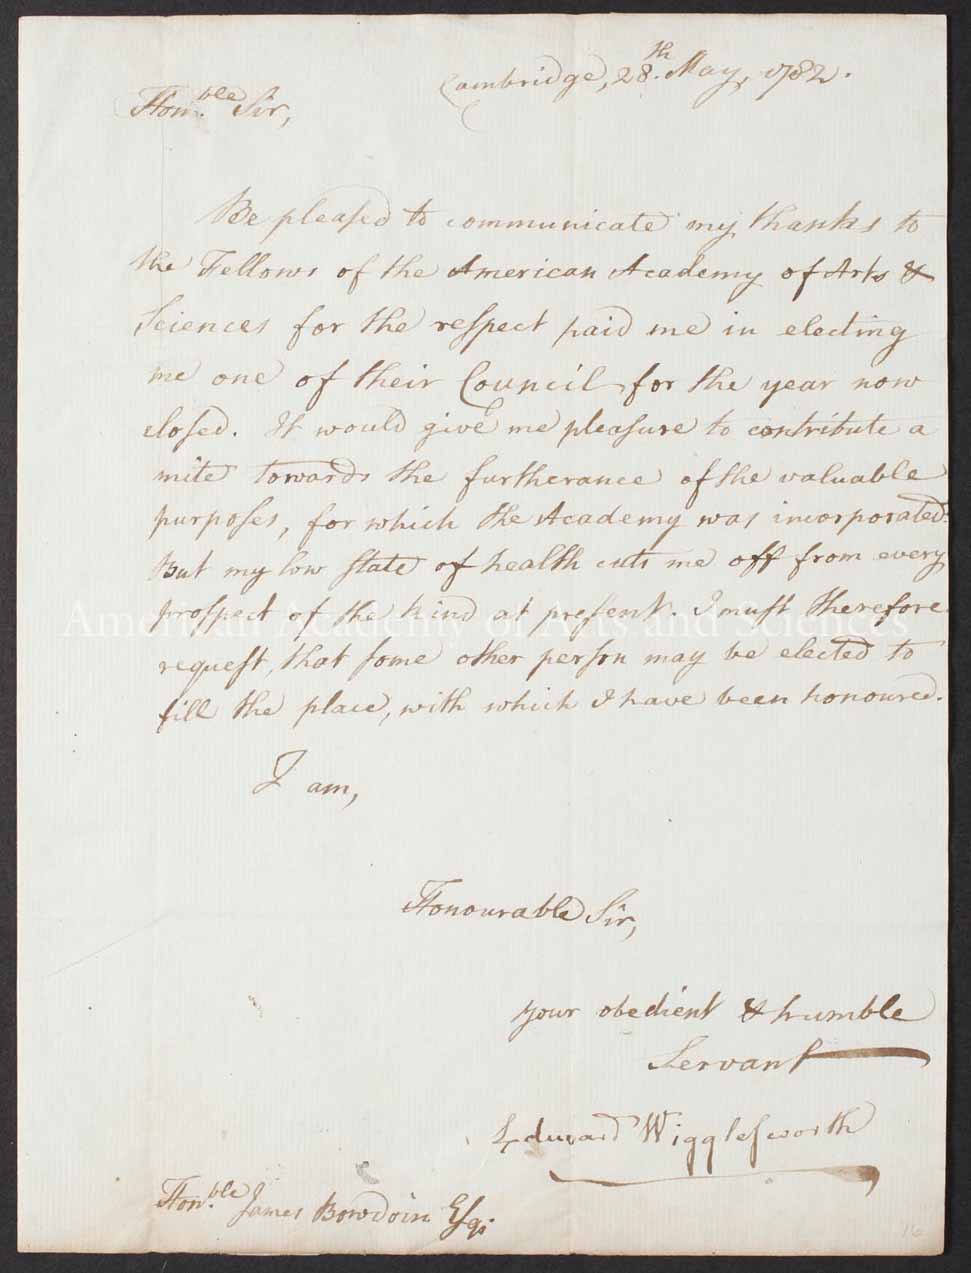 Cambridge, 28.th May, 1782.
Hon.ble Sir,
Be pleaſed to communicate my thanks to
the Fellows of the American Academy of Arts &
Sciences for the reſpect paid me in electing
me one of their Council, for the year now
cloſed. It would give me pleaſure to contribute a
mite towards the furtherance of the valuable
purpoſes, for which the Academy was incorporated.
But my low ſtate of health cuts me off from every
proſpect of the kind at preſent. I muſt therefore
requeſt, that ſome other perſon may be elected to
fill the place, with which I have been honoured.
I am,
Honourable Sir,
your obedient & humble
Servant
Edward Wiggleſworth
Hon.ble James Bowdoin Eſqr.
American Academy of Arts and Sciences
16